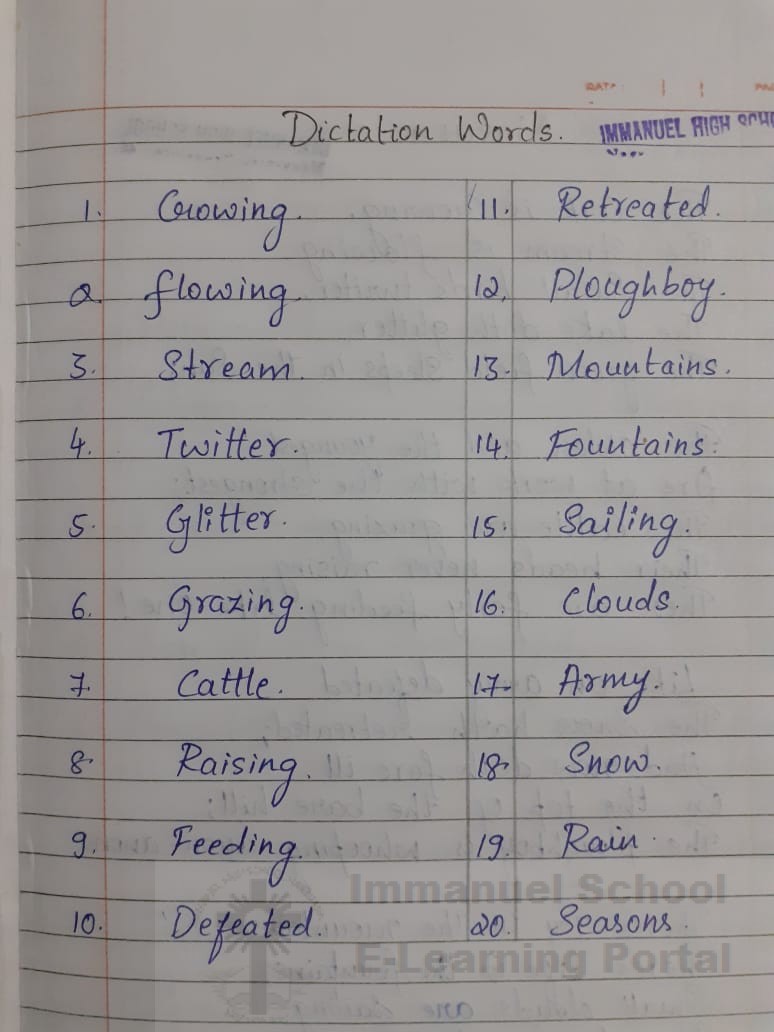 DATE
Dictation Words.
IMMANUEL HIGH SCHO
1. Crowing. 11. Retreated.
2. flowing. 12. Ploughboy.
3. Stream. 13. Mountains.
4. Twitter. 14. Fountains.
5. Glitter. 15. Sailing.
6. Grazing. 16. Clouds.
7. Cattle. 17. Army.
8. Raising. 18. Snow.
9. Feeding. 19. Rain.
10. Defeated. 20. Seasons.
Immanuel School
E-Learning Portal